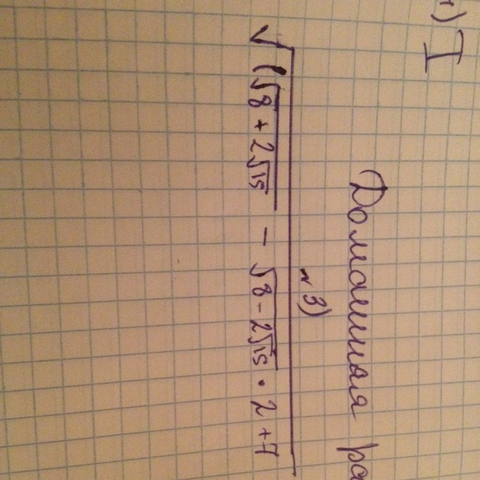 I
Домашняя ра
№3)
√((√(8 + 2√15) - √(8 - 2√15) · 2 + 7